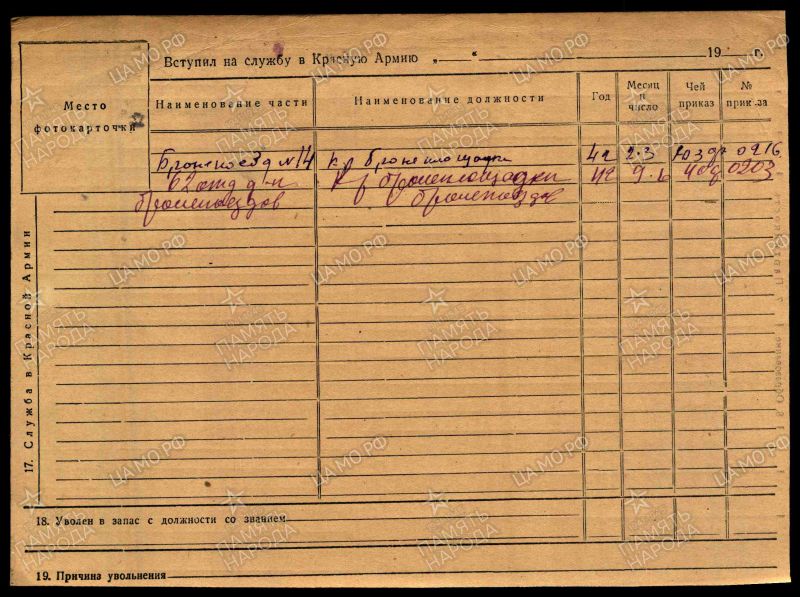 Вступил на службу в Красную Армию „ “ 19 г.
Место фотокарточки
Наименование части
Наименование должности
Год
Месяц и число
Чей приказ
№ приказа
Бронепоезд №14 К-р бронеплощадки 42 2.3 0216
62 отд д-н К-р бронеплощадки 42 9. 0203
бронепоездов бронепоездов
17. Служба в Красной Армии
18. Уволен в запас с должности со званием
19. Причина увольнения
ЦАМО.РФ
ПАМЯТЬ НАРОДА